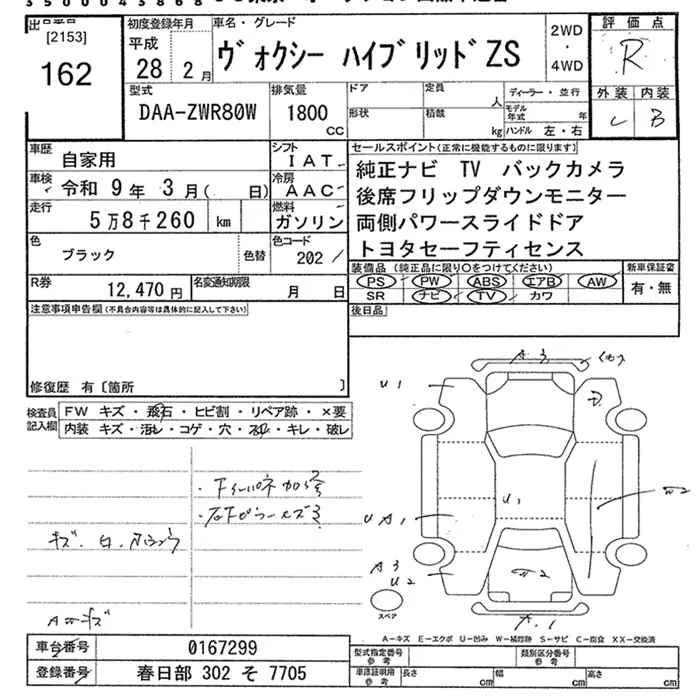 [2153]
162
初度登録年月
平成
28 2 月
車名・グレード
ヴォクシー ハイブリッドZS
2WD
・
4WD
評価点
R
外装 内装
C B
型式
DAA-ZWR80W
排気量
1800
CC
ドア
定員
人
形状
積載
kg
ディーラー・並行
モデル年式 年
ハンドル 左・右
車歴
自家用
シフト
IAT
車検
令和 9年 3月( 日)
冷房
AAC
走行
5万8千260 km
燃料
ガソリン
色
ブラック
色替
色コード
202
R券
12,470 円
名変通知期限
月 日
セールスポイント(正常に機能するものに限ります)
純正ナビ TV バックカメラ
後席フリップダウンモニター
両側パワースライドドア
トヨタセーフティセンス
装備品 (純正品に限り○をつけてください)
PS PW ABS エアB AW
SR ナビ TV カワ
新車保証書
有・無
後日品
注意事項申告欄(不具合内容等は具体的に記入して下さい)
修復歴 有〔箇所 〕
検査員
記入欄
FW キズ・飛石・ヒビ割・リペア跡・×要
内装 キズ・汚レ・コゲ・穴・スレ・キレ・破レ
A3
U1
U1
UA1
A3
U2
A1
スペア
A-キズ E-エクボ U-凹み W-補修跡 S-サビ C-腐食 XX-交換済
車台番号
0167299
登録番号
春日部 302 そ 7705
型式指定番号
参考
類別区分番号
参考
車庫証明用
参考
長さ cm
幅 cm
高さ cm